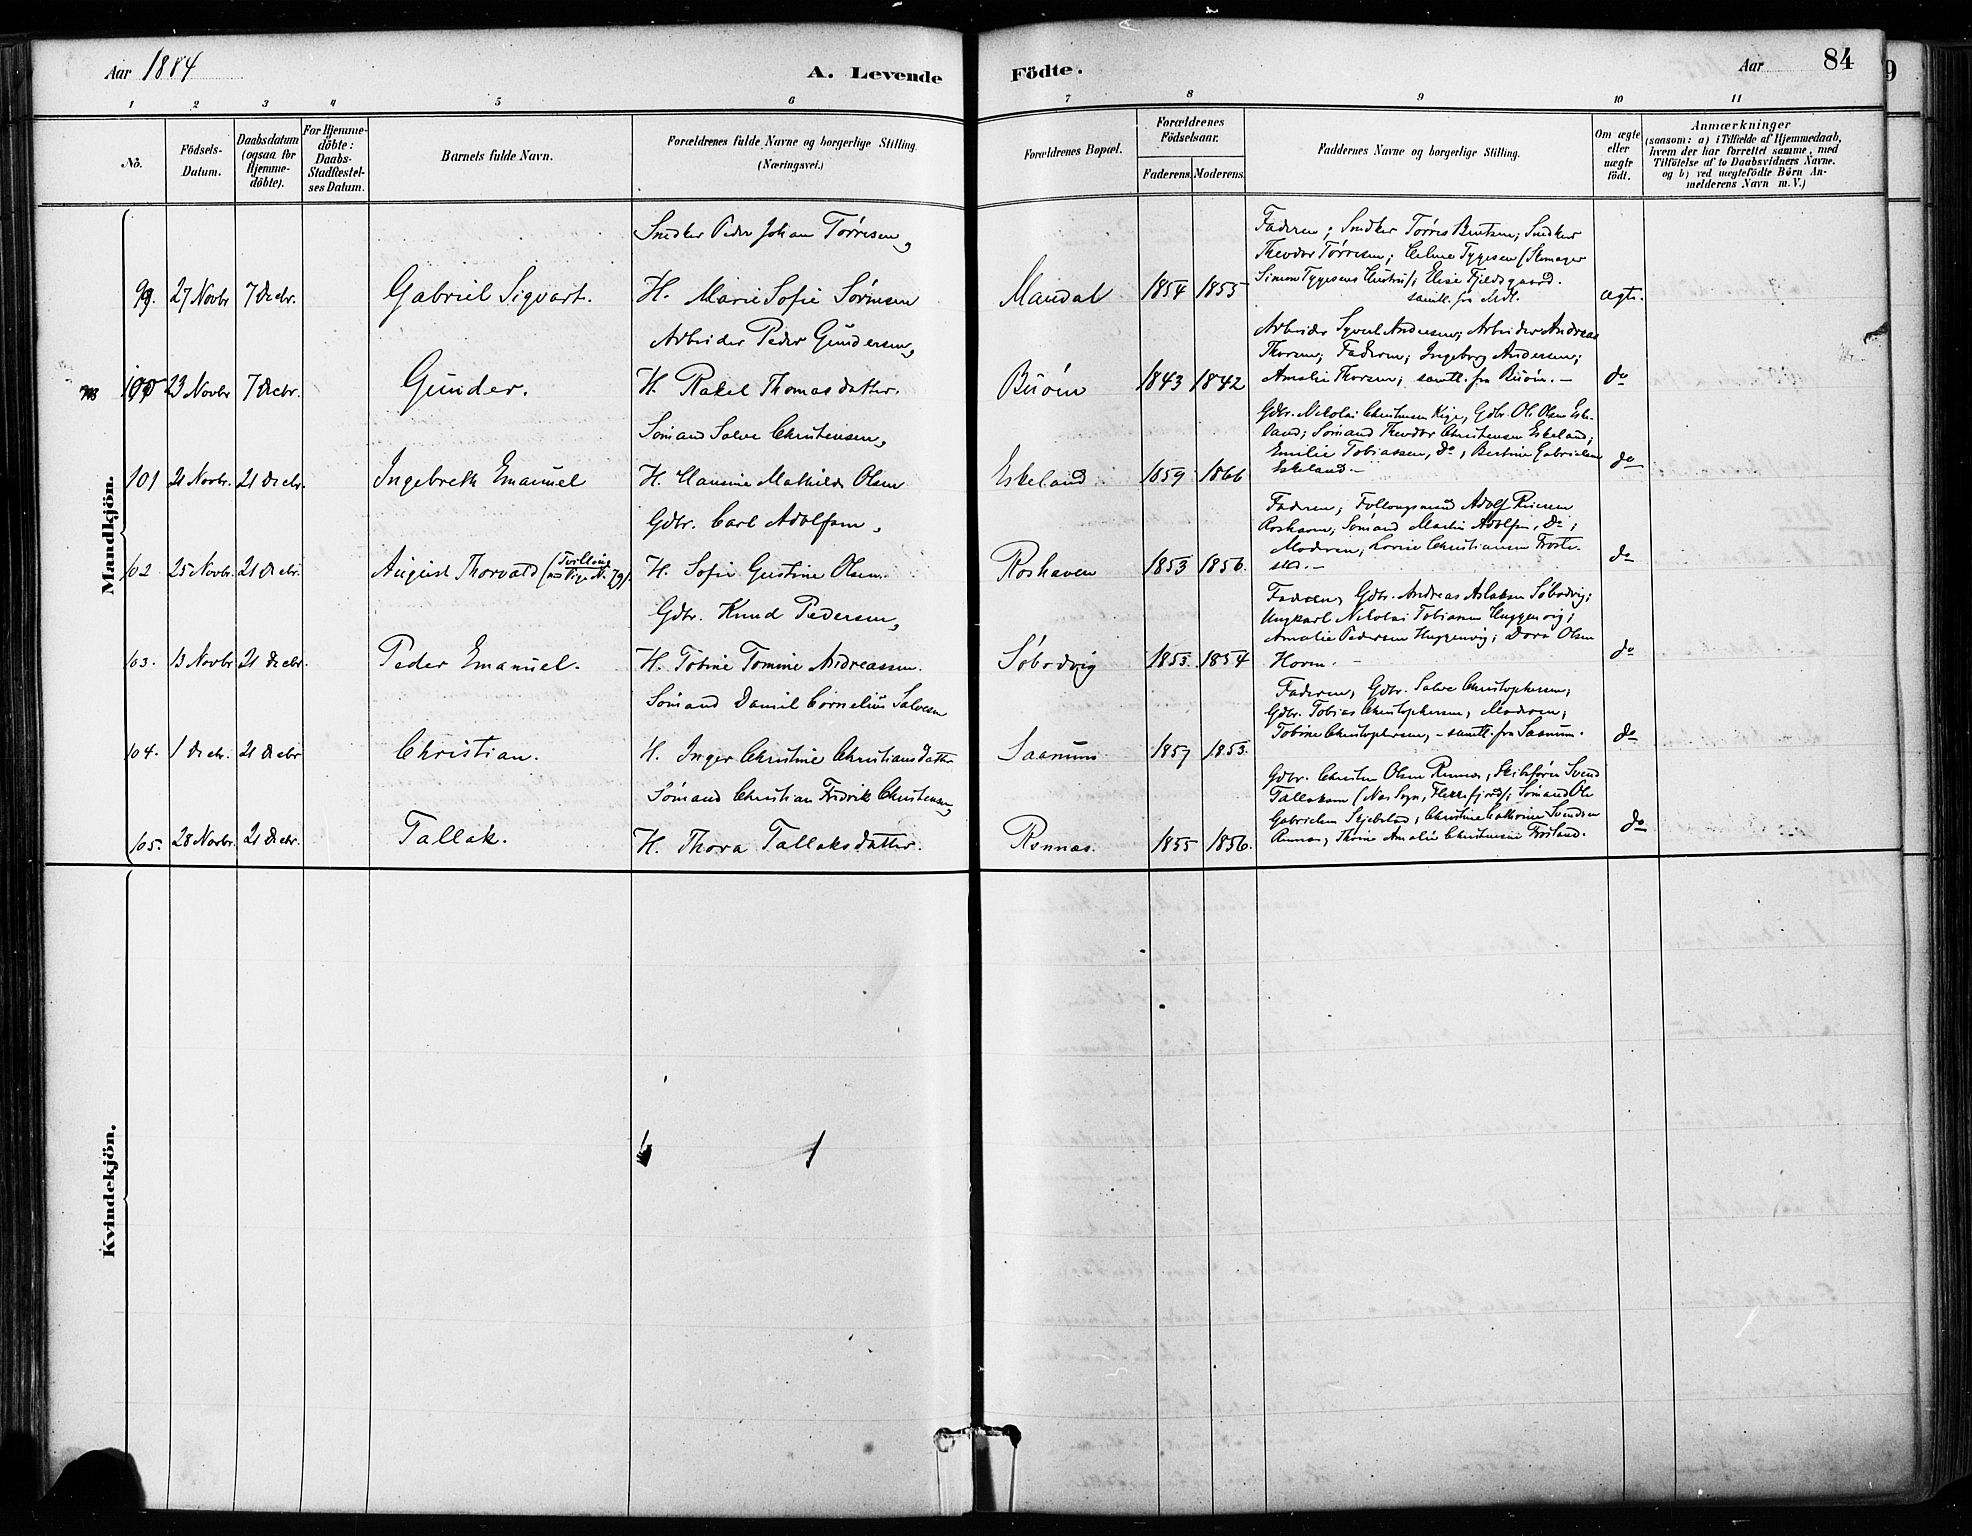 Aar 1884
A. Levende Födte.
Aar 84
9
1 2 3 4 5 6 7 8 9 10 11
No.
Födsels-Datum.
Daabsdatum (ogsaa for Hjemme-döbte).
For Hjemme-döbte: Daabs-Stadfæstel-ses Datum.
Barnets fulde Navn.
Forældrenes fulde Navne og borgerlige Stilling. (Næringsvei.)
Forældrenes Bopæl.
Forældrenes Födselsaar.
Faderens. Moderens.
Faddernes Navne og borgerlige Stilling.
Om ægte eller uægte födt.
Anmærkninger
(saasom: a) i Tilfælde af Hjemmedaab, hvem der har forrettet samme, med Tilföielse af to Daabsvidners Navne. og b) ved uægtefödte Börn An-melderens Navn m. V.)
Mandkjön.
Snedker Peder Johan Tørresen,
99. 27 Novbr 7 Decbr. Gabriel Sigvart. H. Marie Sofie Sørensen Mandal 1854 1855
Faderen; Snedker Tørres Bentsen; Snedker
Theodor Tørresen; Helene Tygesen (Skomager
Simon Tygesens Hustru); Elise Fjeldsgaard.
samtl. fra Mdl.
ægte.
Arbeider Peder Gundersen,
100 23 Novbr 7 Decbr. Gunder. H. Rakel Thomasdatter. Buøen 1843 1842
Arbeider Syvert Andersen; Arbeider Andreas
Thorsen; Faderen; Ingeborg Andersen;
Amalie Thorsen; samtl. fra Buøen. -
do
Sømand Salve Christensen,
101 21 Novbr. 21 Decbr. Ingebreth Emanuel H. Hansine Mathilde Olsen Eskeland 1859 1866
Gdbr. Nikolai Christensen Kige, Gdbr. Ole Olsen Eske-
land; Sømand Theodor Christensen Eskeland;
Emilie Tobiassen, do, Bertine Gabrielsen
Eskeland. -
do
Gdbr. Carl Adolfsen,
102 25 Novbr. 21 Decbr. August Thorvald (Tvilling med Pige N. 79). H. Sofie Gustine Olsen. Roshaven 1853 1856.
Faderen; Adolf
Roshaven, Sømand Martin Adolfsen, do;
Moderen, Lovise Christiansen
do
Gdbr. Knud Pedersen,
103. 13 Novbr 21 Decbr. Peder Emanuel. H. Tobine Tomine Andreassen. Søbodvig 1855. 1854
Faderen, Gdbr. Andreas Aslaksen Søbodvig;
Ungkarl Nikolai Tobiassen Huggenvig;
Amalie Pedersen Huggenvig; Dora Olsen
Horen. -
do
Sømand Daniel Cornelius Salvesen
104. 1 Decbr. 21 Decbr Christian. H. Inger Christine Christiansdatter. Saanum 1857 1853.
Faderen, Gdbr. Salve Christophersen;
Gdbr. Tobias Christophersen, Moderen;
Tobine Christophersen, - samtl. fra Saanum.
do
Sømand Christian Fredrik Christensen,
105. 28 Novbr. 21 Decbr. Tallak. H. Thora Tallaksdatter. Rønnæs. 1855 1856.
Gdbr. Christen Olsen Rønnæs, Skibsfører Svend
Tallaksen (Næs Sogn, Flekkefjord); Sømand Ole
Gabrielsen Skjebstad; Christine Cathrine Svendsen
Rønnæs, Thorine Amalie Christensen Frøiland.
do
Kvindekjön.